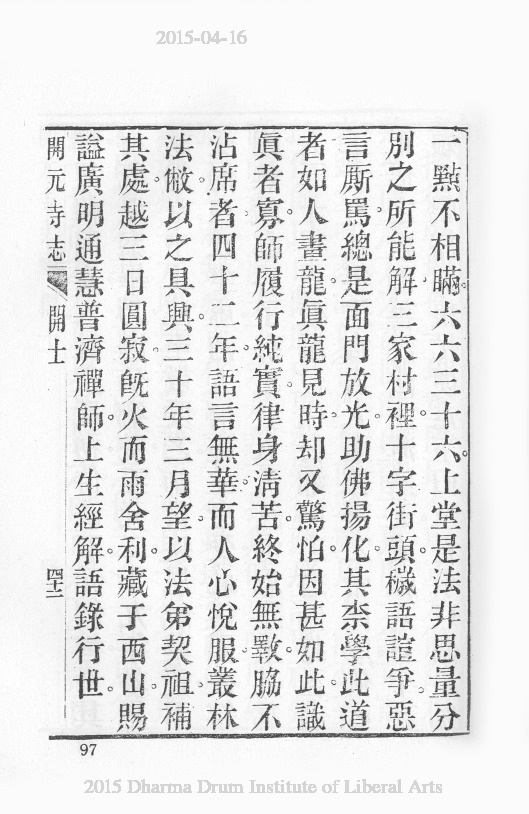 2015-04-16
一點不相瞞。六六三十六。上堂是法非思量分
別之所能解。三家村裡。十字街頭。穢語諠爭。惡
言厮罵。總是面門放光。助佛揚化。其柰學此道
者。如人畫龍。眞龍見時。却又驚怕。因甚如此。識
眞者寡。師履行純實。律身清苦。終始無斁。脇不
沾席者四十二年。語言無華。而人心悅服。叢林
法倣。以之具興。三十年三月望。以法弟契祖補
其處。越三日圓寂。旣火而雨舍利。藏于西山。賜
謚廣明通慧普濟禪師。上生經解。語錄行世。
開元寺志 開士 四十二
97
2015 Dharma Drum Institute of Liberal Arts